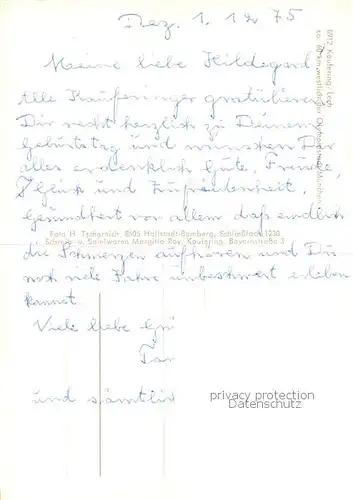 Dez. 1. 12 75
Meine liebe Hildegard
Alle Kauferinger gratulieren
Dir recht herzlich zu Deinem
Geburtstag und wünschen Dir
alles erdenklich Gute, Freude,
Glück und Zufriedenheit,
Gesundheit vor allem daß endlich
die Schmerzen aufhören und Du
noch viele Jahre unbeschwert erleben
kannst.
Viele liebe Grü
und sämtlic
8912 Kaufering / Lech
Foto H. Tscharnich, 8605 Hallstadt-Bamberg, Schließfach 1230
Schreib- u. Spielwaren Margitta Roy, Kaufering, Bayernstraße 3
privacy protection
Datenschutz